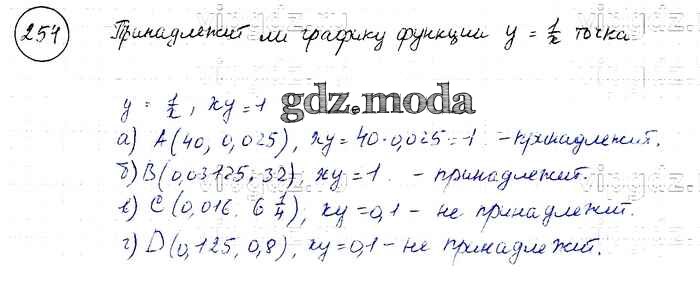 254 Принадлежит ли графику функции y = 1/x точка
y = 1/x, xy = 1
gdz.moda
а) A(40, 0,025), xy = 40·0,025 = 1 - принадлежит.
б) B(0,03125; 32), xy = 1 - принадлежит.
в) C(0,016. 6 1/4), xy = 0,1 - не принадлежит.
г) D(0,125, 0,8), xy = 0,1 - не принадлежит.